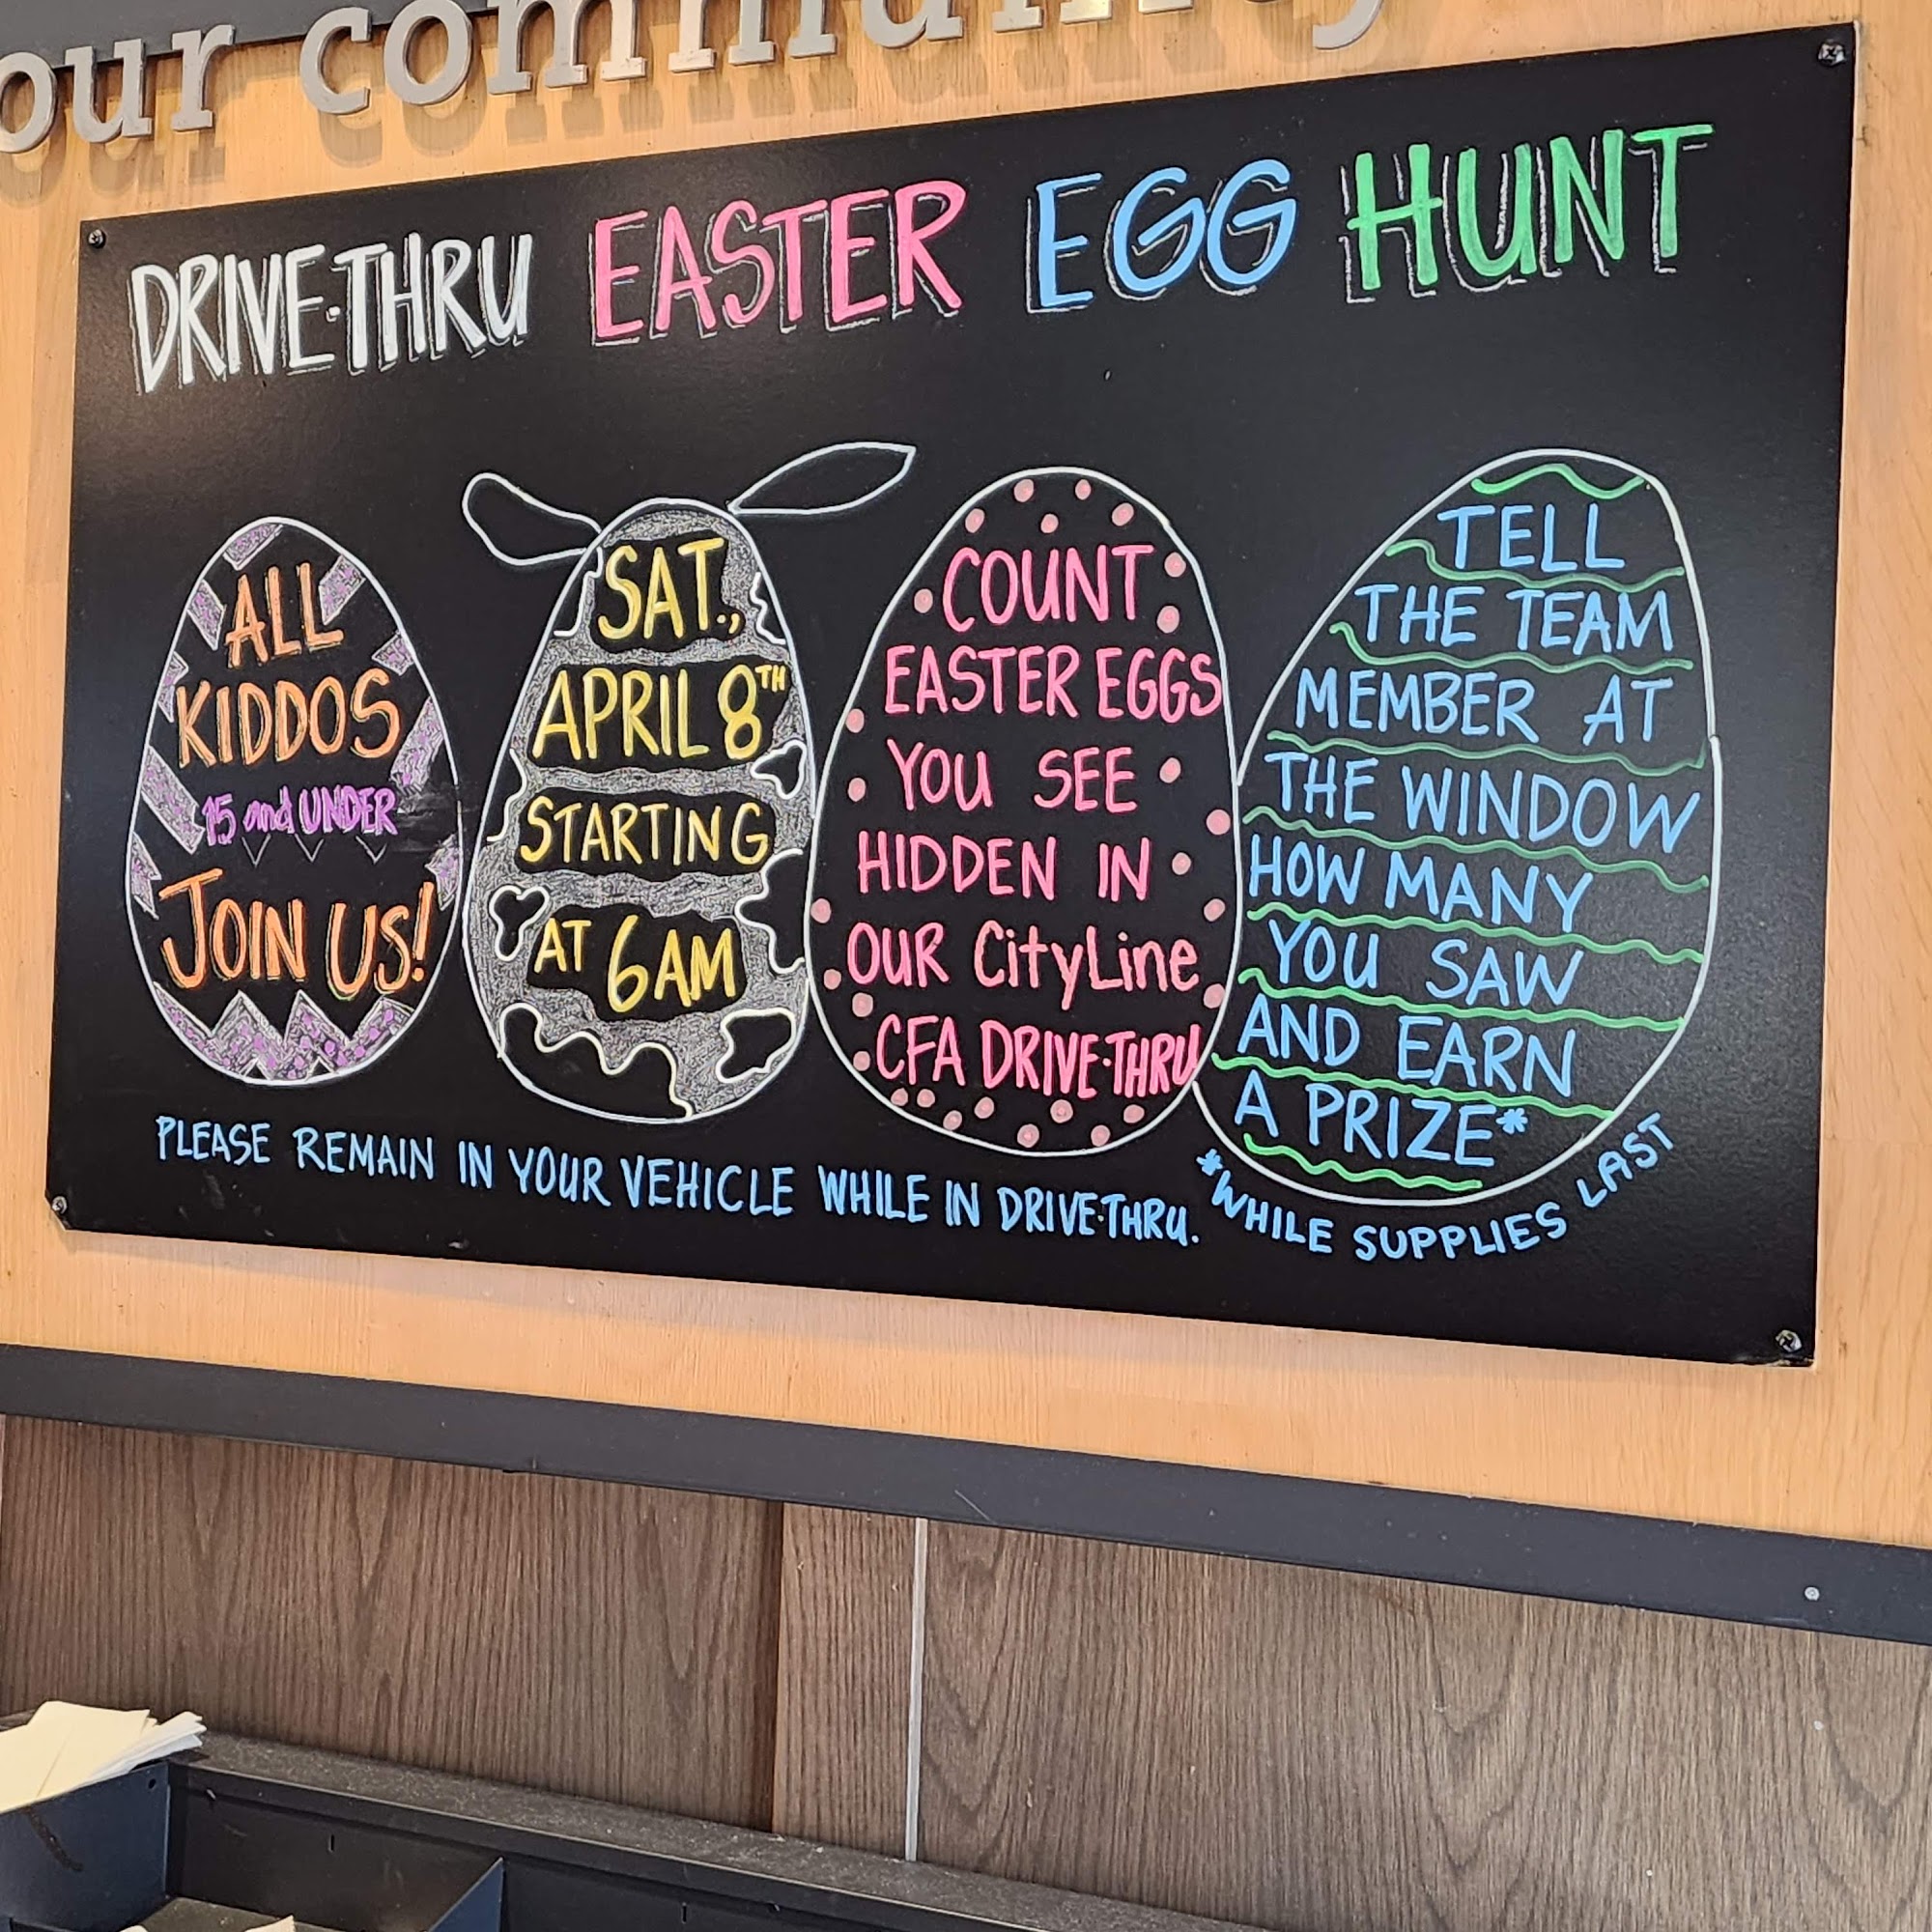 our community
DRIVE-THRU EASTER EGG HUNT
ALL
KIDDOS
15 and UNDER
JOIN US!
SAT.,
APRIL 8TH
STARTING
AT 6AM
COUNT
EASTER EGGS
YOU SEE
HIDDEN IN
OUR CityLine
CFA DRIVE-THRU
TELL
THE TEAM
MEMBER AT
THE WINDOW
HOW MANY
YOU SAW
AND EARN
A PRIZE*
*WHILE SUPPLIES LAST
PLEASE REMAIN IN YOUR VEHICLE WHILE IN DRIVE-THRU.